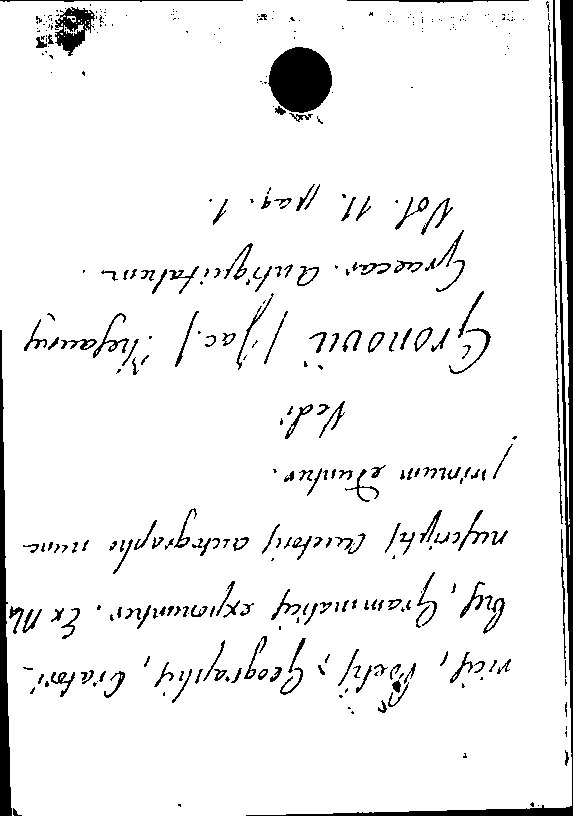 ricis, Poetis, Geographis, Oratori-
bus, Grammaticis exponuntur. Ex Ma
nuscriptis Auctoris autographo nunc
primum eduntur.
Vedi
Gronovii (Jac.) Thesaurus
Graecar. Antiquitatum.
Vol. 11. pag. 1.